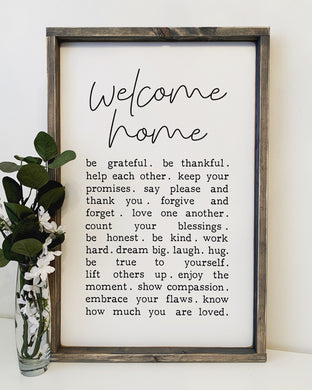 welcome
home
be grateful. be thankful.
help each other. keep your
promises. say please and
thank you. forgive and
forget. love one another.
count your blessings.
be honest. be kind. work
hard. dream big. laugh. hug.
be true to yourself.
lift others up. enjoy the
moment. show compassion.
embrace your flaws. know
how much you are loved.